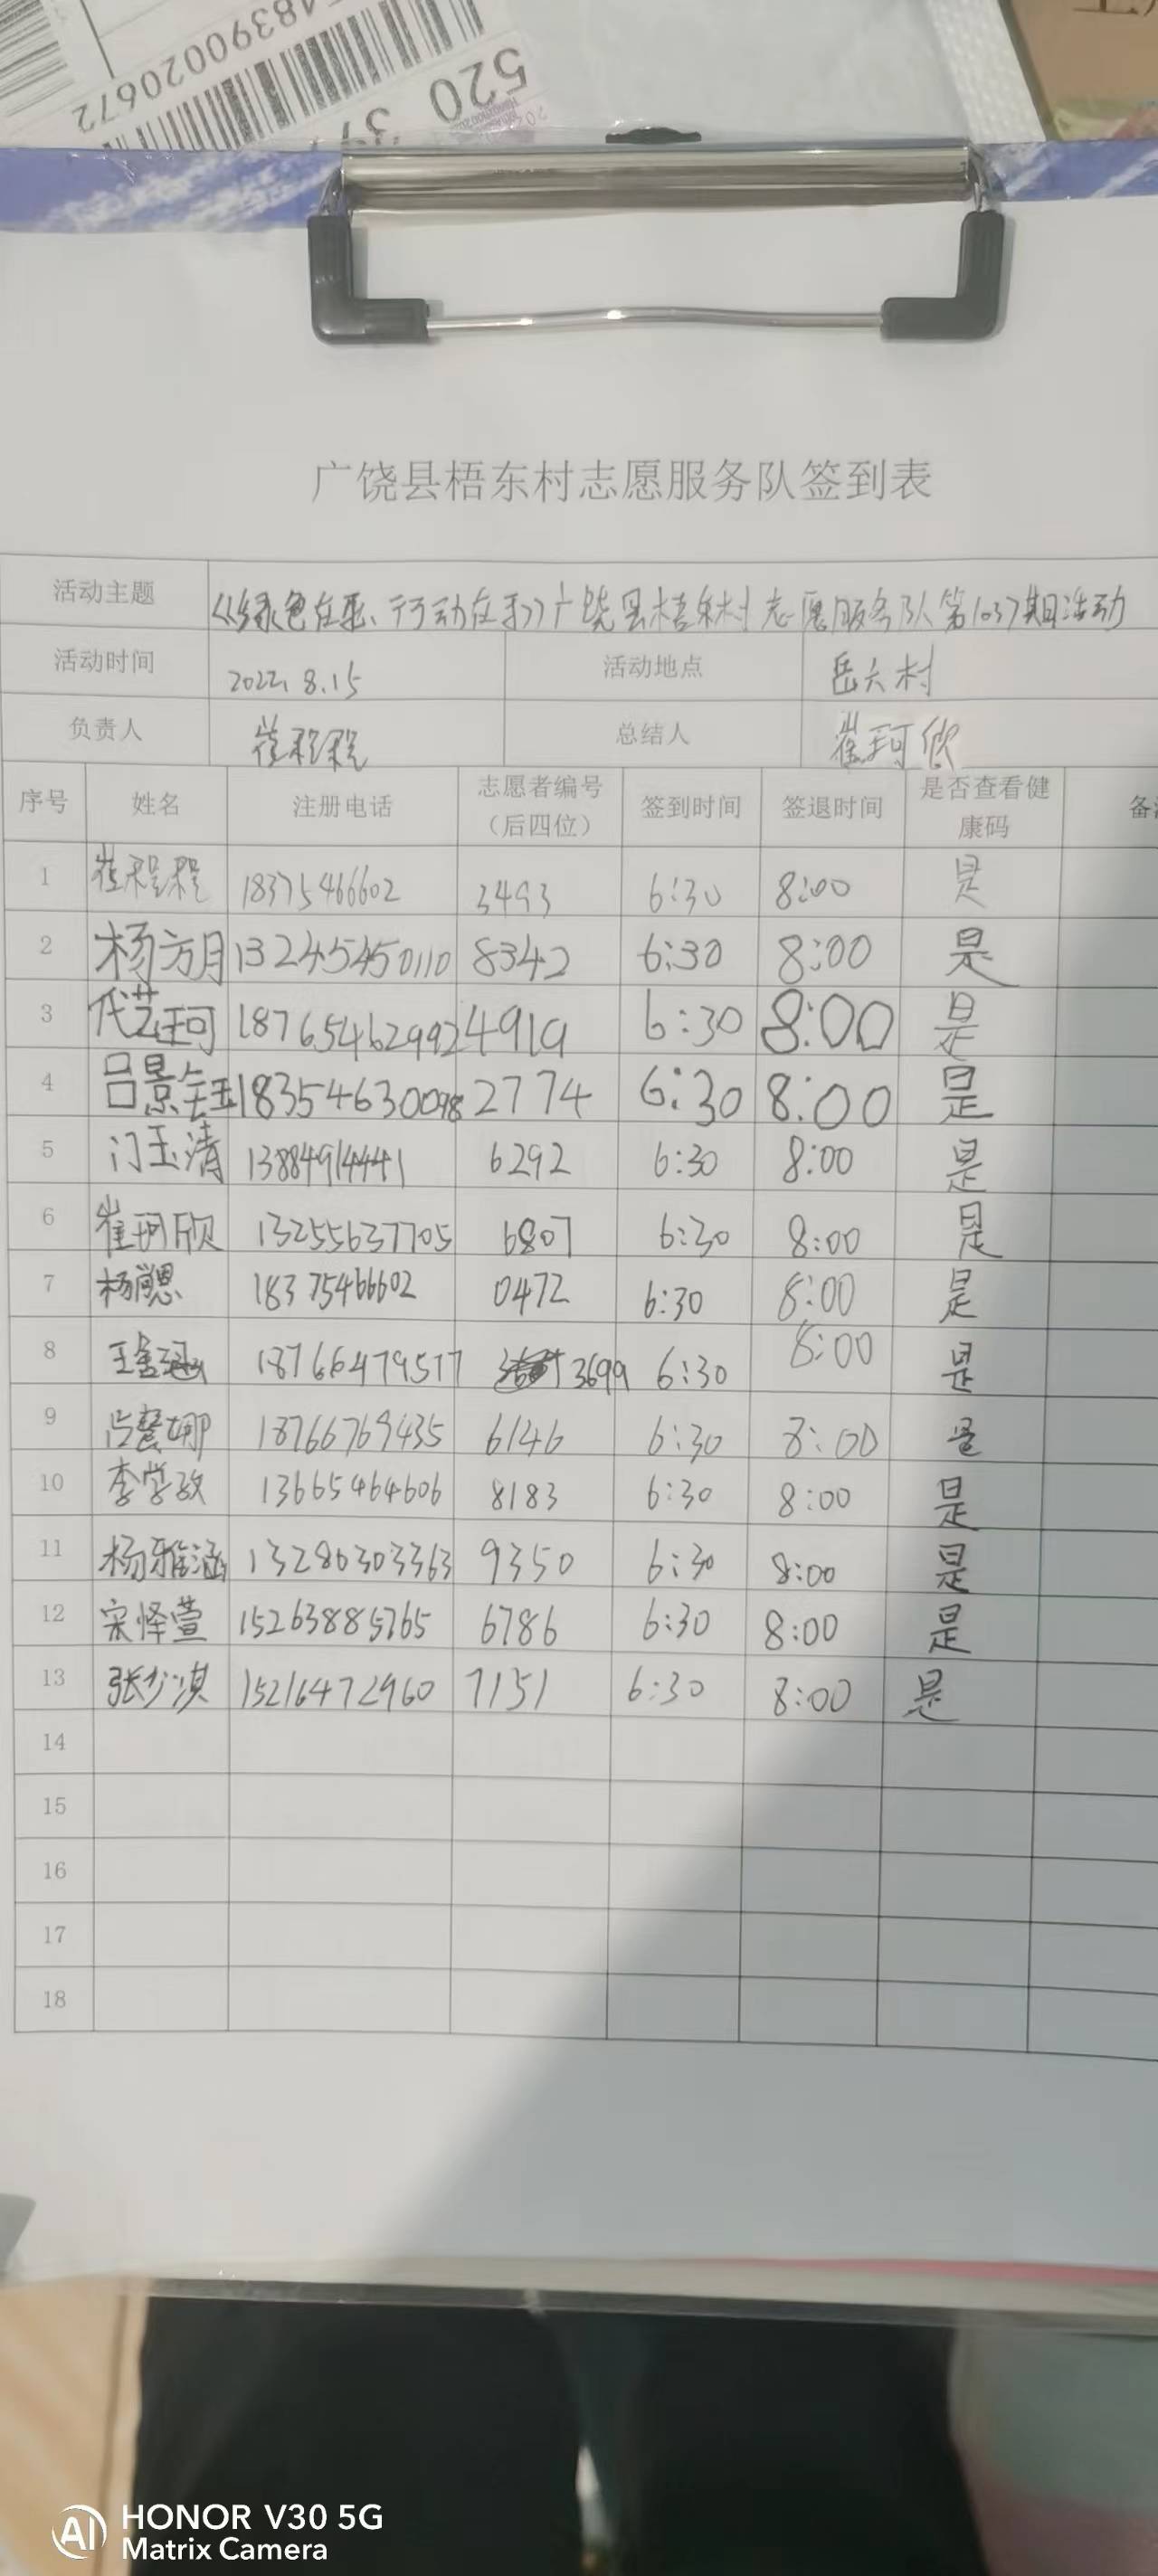 4839002067 2
520
广饶县梧东村志愿服务队签到表
活动主题 《绿色在 、行动在手》广饶县梧东村志愿服务队第1037期活动
活动时间 2022.8.15 活动地点 岳六村
负责人 崔程程 总结人 崔珂欣
序号 姓名 注册电话 志愿者编号（后四位） 签到时间 签退时间 是否查看健康码
1 崔程程 18375466602 3493 6:30 8:00 是
2 杨方月 13245450110 8342 6:30 8:00 是
3 代艺珂 18765462992 4919 6:30 8:00 是
4 吕景钰 18354630098 2774 6:30 8:00 是
5 门玉清 13884914441 6292 6:30 8:00 是
6 崔珂欣 13255637705 6807 6:30 8:00 是
7 18375466602 0472 6:30 8:00 是
8 18766479517 3699 6:30 8:00 是
9 18766769435 6146 6:30 8:00 是
10 13665464606 8183 6:30 8:00 是
11 杨雅涵 13280303363 9350 6:30 8:00 是
12 宋怿萱 15263885765 6786 6:30 8:00 是
13 张少淇 15216472960 7151 6:30 8:00 是
14
15
16
17
18
AI HONOR V30 5G
Matrix Camera